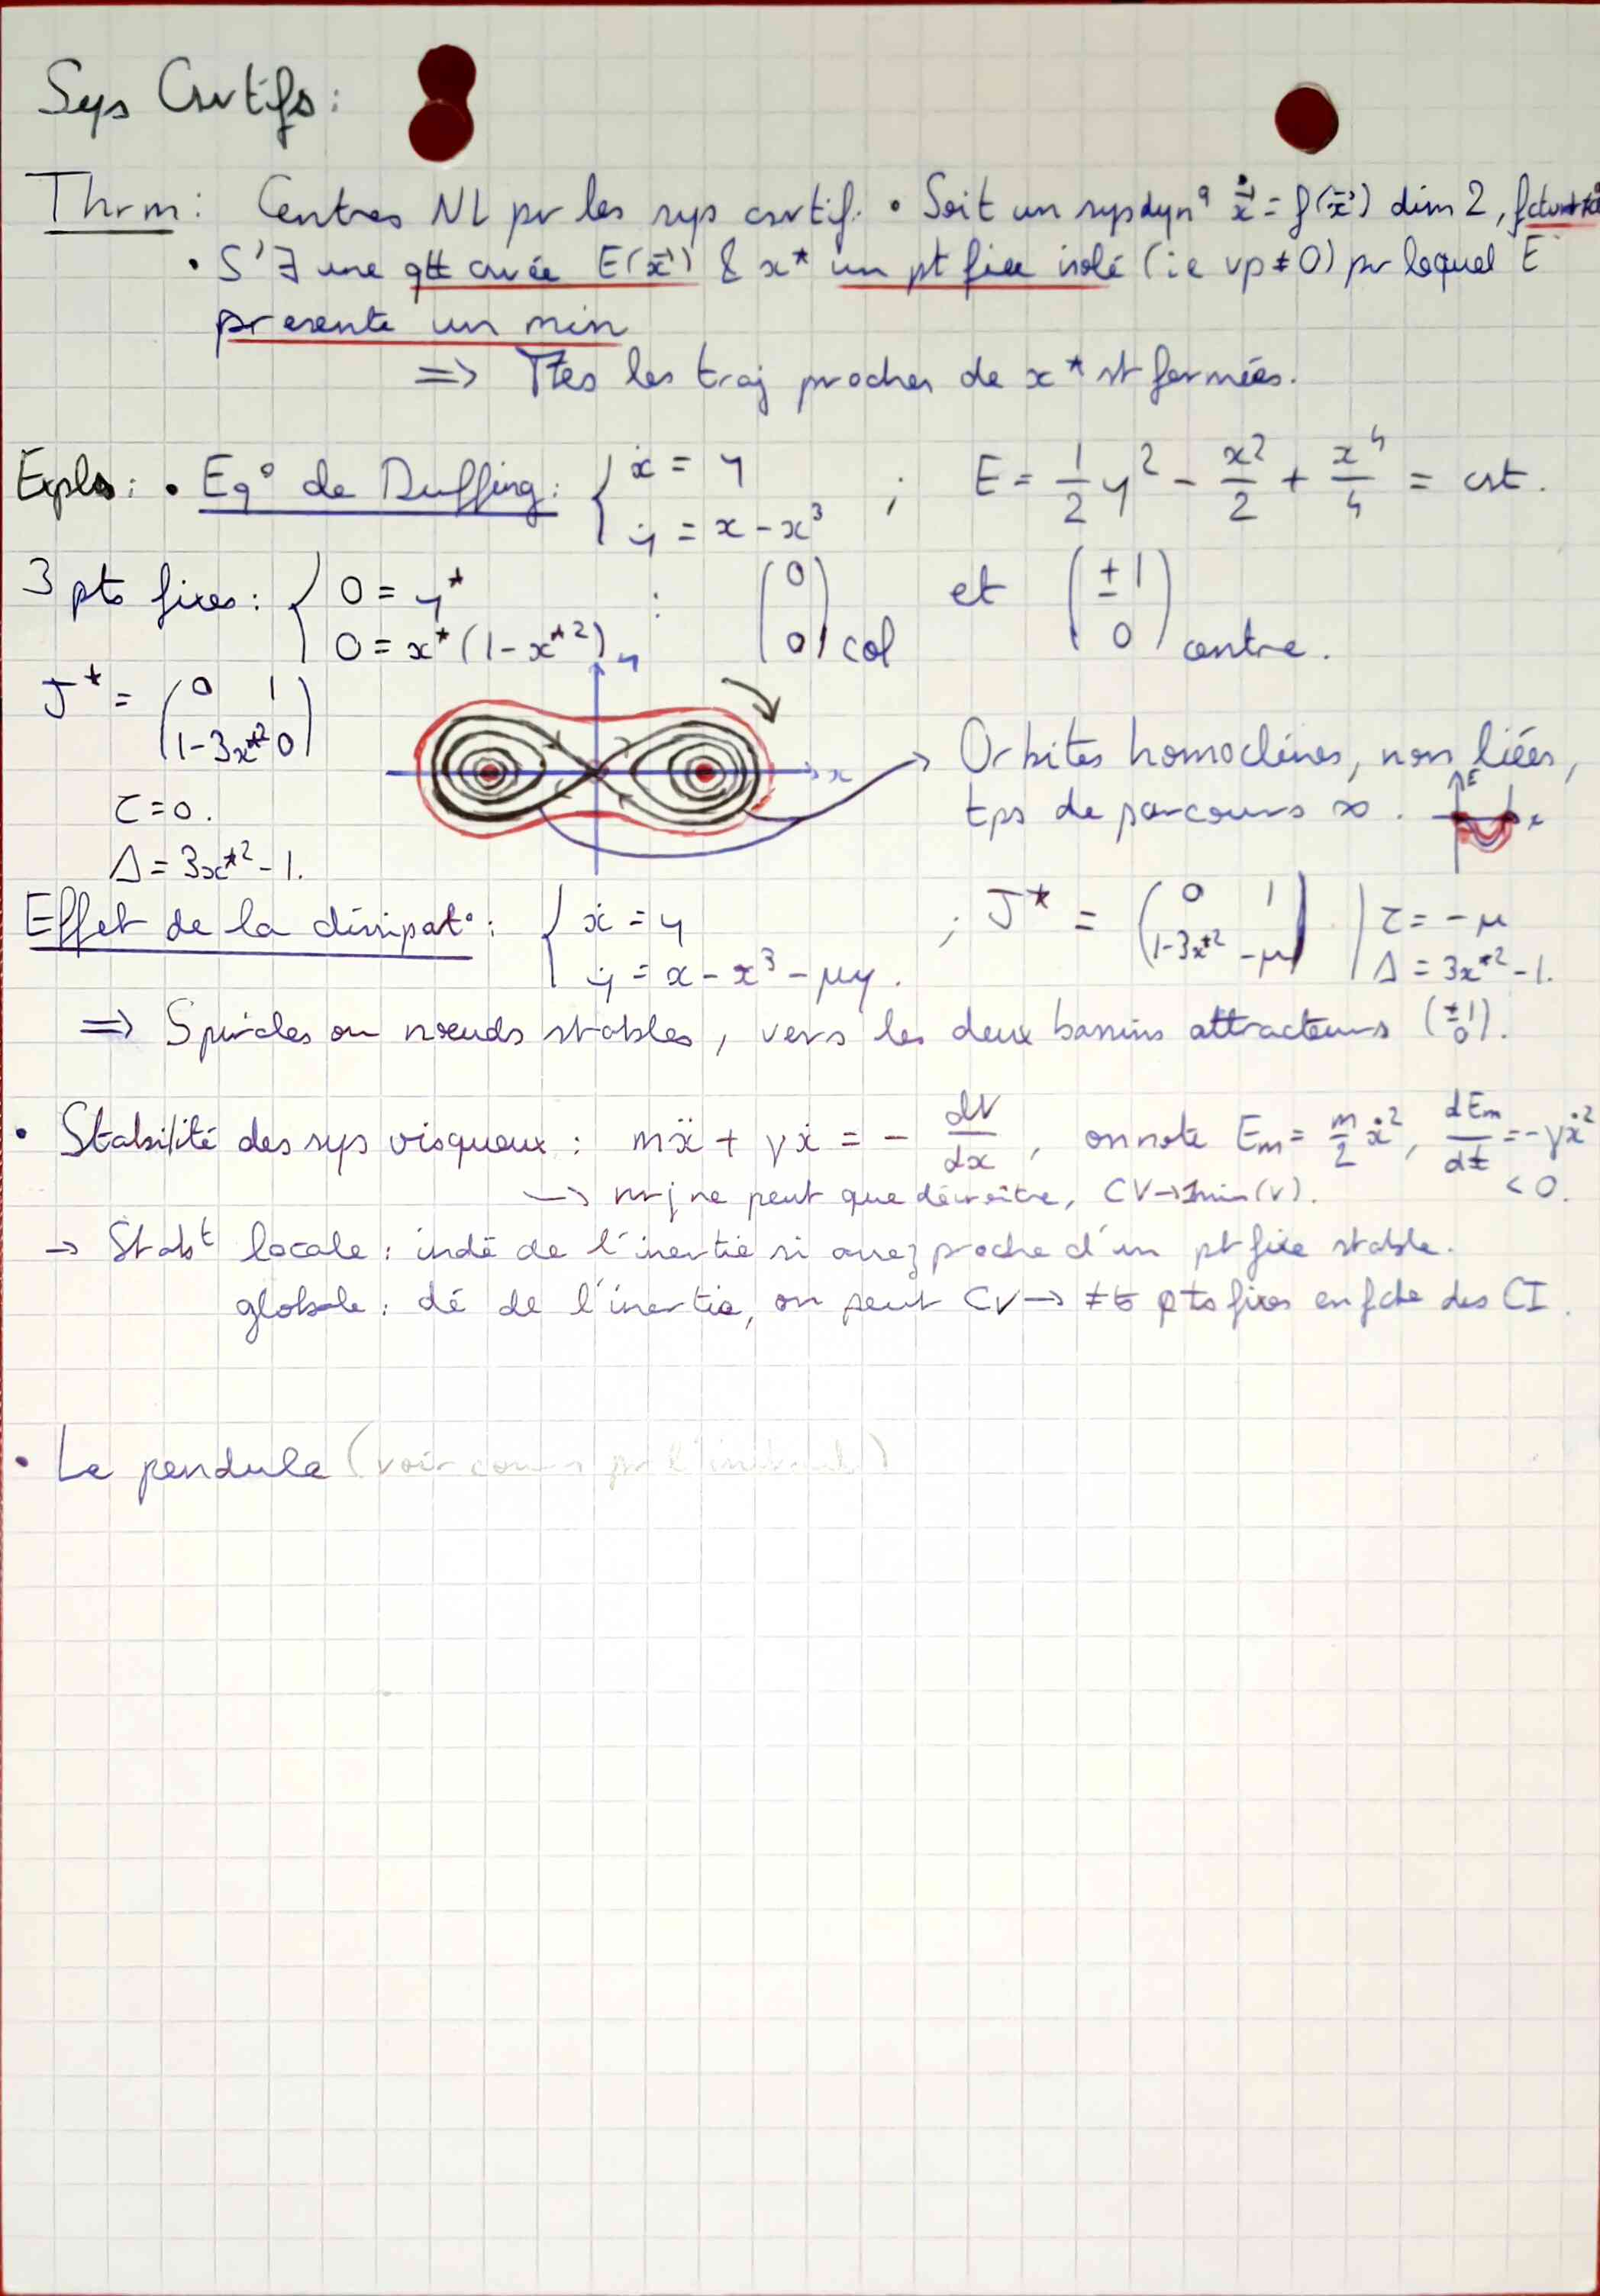 Sys Csvtifs :
Thrm : Centres NL pr les sys csvtif. • Soit un sys dyn q ẋ = f(x) dim 2, f
• S'∃ une qtt csvée E(x) & x* un pt fixe isolé (ie vp ≠ 0) pr lequel E
présente un min
=> Ttes les traj proches de x* st fermées.
Expls : • Eq° de Duffing : { ẋ = y ; E = 1/2 y² - x²/2 + x⁴/4 = cst.
ẏ = x - x³
3 pts fixes : { 0 = y* : (0 0) col et (±1 0) centre.
0 = x*(1 - x*²)
J* = (0 1
1-3x*² 0)
τ = 0.
Δ = 3x*² - 1.
y
x
Orbites homoclines, non liées,
tps de parcours ∞.
E
x
Effet de la dissipat° : { ẋ = y ; J* = (0 1 | τ = -μ
ẏ = x - x³ - μy. 1-3x*² -μ) | Δ = 3x*² - 1.
=> Spirales ou nœuds stables, vers les deux bassins attracteurs (±1 0).
• Stabilité des sys visqueux : mẍ + γẋ = - dV/dx, on note Em = m/2 ẋ², dEm/dt = -γẋ² < 0.
-> nrj ne peut que décroître, CV→ 1 min(V).
-> Stabt locale : indé de l'inertie si assez proche d'un pt fixe stable.
globale : dé de l'inertie, on peut CV → ≠ts pts fixes en fct° des CI.
• Le pendule (voir cours pr l'intégral)